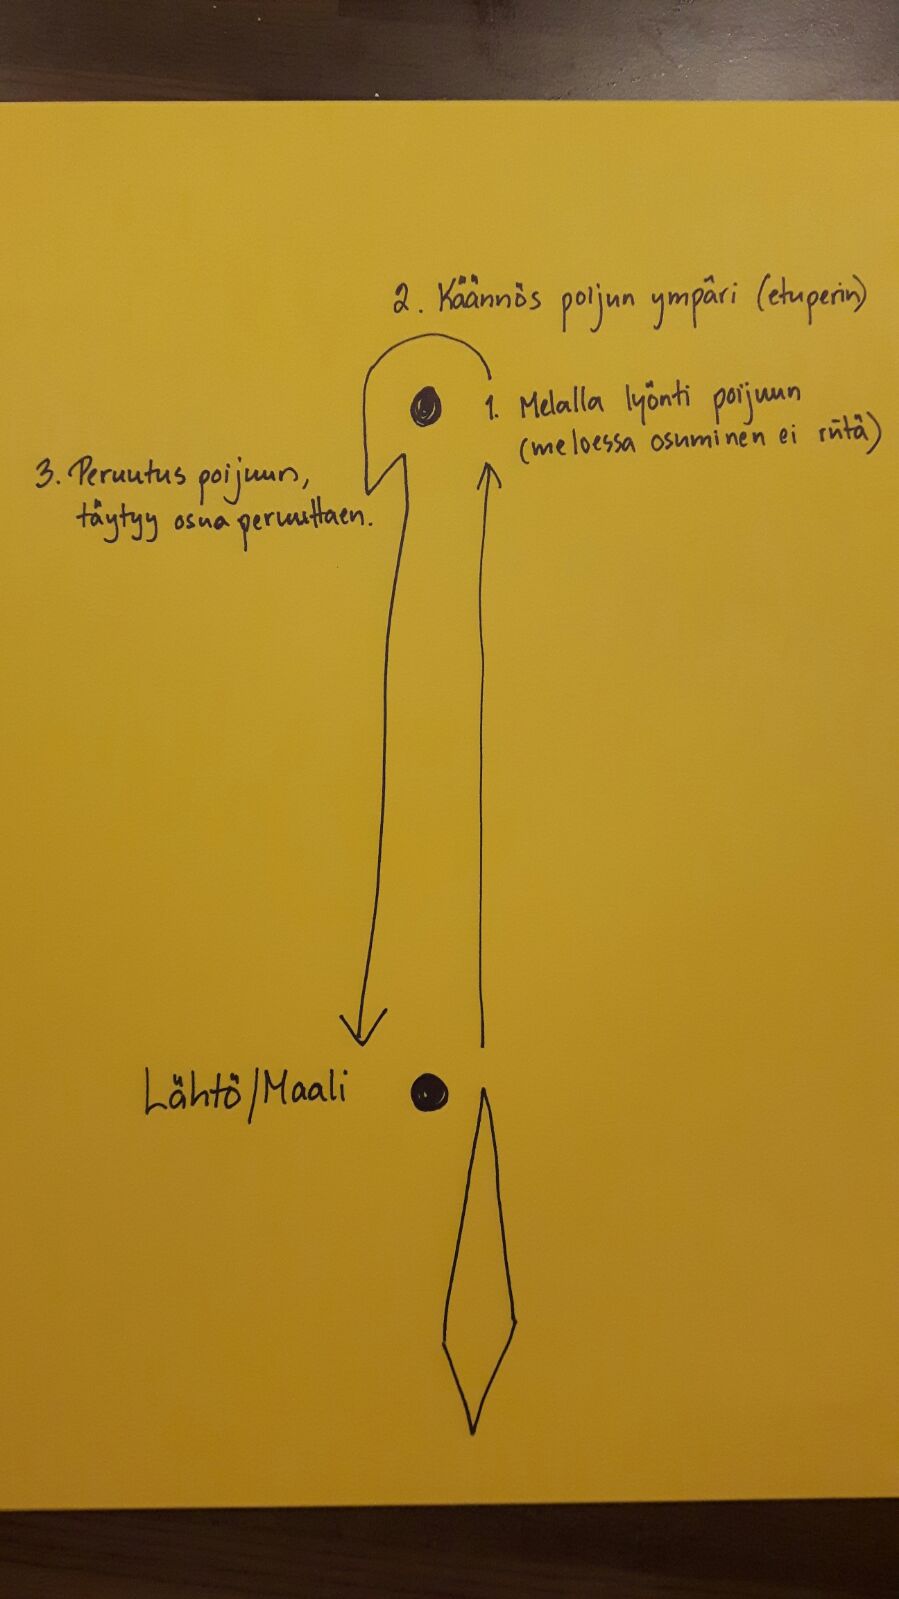 2. Käännös poijun ympäri (etuperin)
1. Melalla lyönti poijuun
(meloessa osuminen ei riitä)
3. Peruutus poijuun,
täytyy osua peruuttaen.
Lähtö/Maali